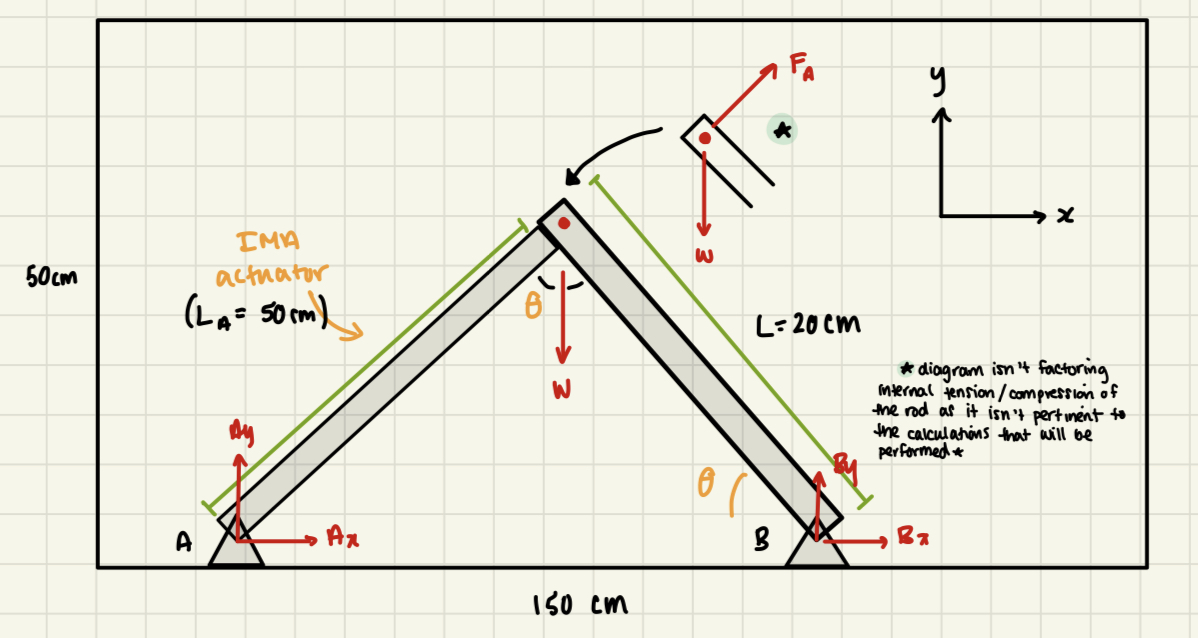 y
F_A
★
x
W
IMA
actuator
(L_A = 50cm)
50cm
θ
W
L=20cm
★ diagram isn't factoring
internal tension/compression of
the rod as it isn't pertinent to
the calculations that will be
performed★
Ay
By
θ
A
Ax
B
Bx
150 cm